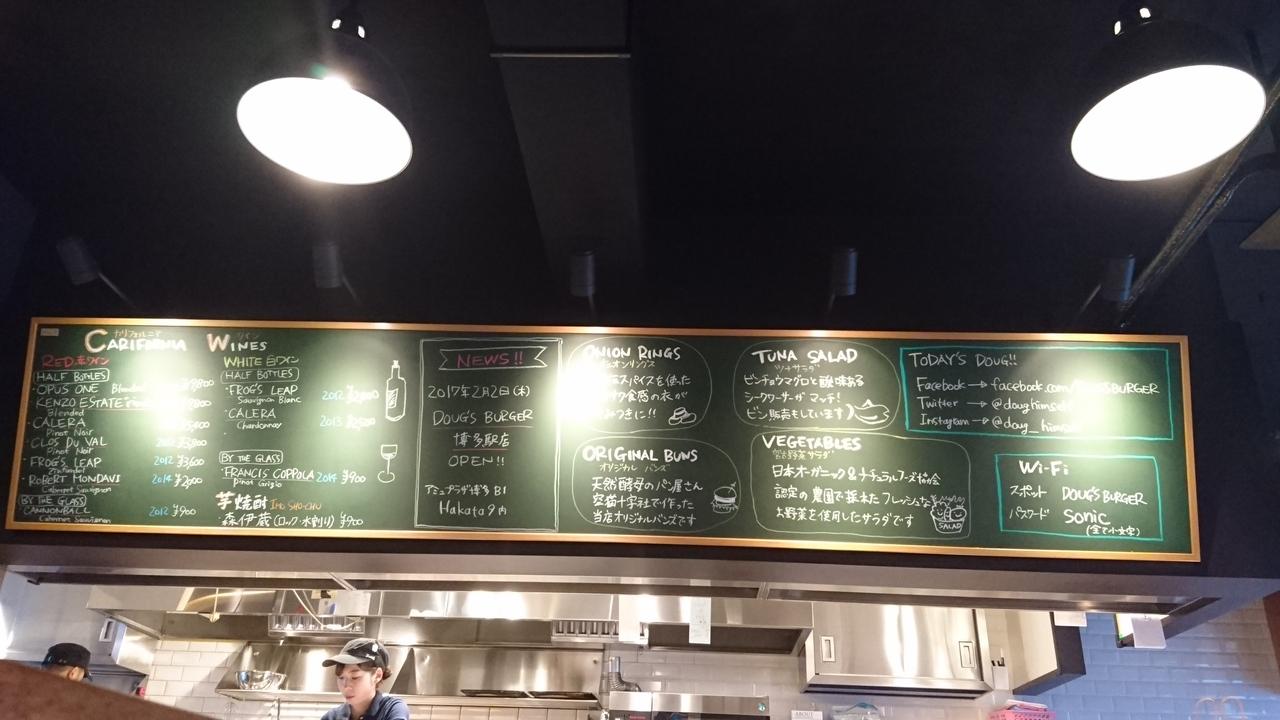 カリフォルニア
CARIFORNIA WINES
RED 赤ワイン
HALF BOTTLES
・OPUS ONE Blended
・KENZO ESTATE
Blended
・CALERA
Pinot Noir
・CLOS DU VAL
Pinot Noir
・FROG'S LEAP 2012 ¥3,600
・ROBERT MONDAVI 2014 ¥2,900
Cabernet Sauvignon
BY THE GLASS
・CANNONBALL 2012 ¥900
Cabernet Sauvignon
WHITE 白ワイン
HALF BOTTLES
・FROG'S LEAP 2012
Sauvignon Blanc
・CALERA 2013
Chardonnay
BY THE GLASS
・FRANCIS COPPOLA 2014 ¥900
Pinot Grigio
芋焼酎 IMO SHO-CHU
森伊蔵(ロック・水割り) ¥900
NEWS!!
2017年2月2日(木)
DOUG'S BURGER
博多駅店
OPEN!!
アミュプラザ博多 B1
Hakata9内
ONION RINGS
オニオンリングス
スパイスを使った
食感の衣が
やみつきに!!
ORIGINAL BUNS
オリジナル バンズ
天然酵母のパン屋さん
空猫十字社で作った
当店オリジナルバンズです
TUNA SALAD
ツナサラダ
ビンチョウマグロと酸味ある
シークワーサーが マッチ!
ビン販売もしています
VEGETABLES
宮古野菜サラダ
日本オーガニック&ナチュラルフーズ協会
認定の農園で採れた フレッシュな
お野菜を使用したサラダです
SALAD
TODAY'S DOUG!!
Facebook → facebook.com/DOUG'SBURGER
Twitter → @doughimself
Instagram → @doug_himself
Wi-Fi
スポット DOUG'S BURGER
パスワード Sonic
(全て小文字)